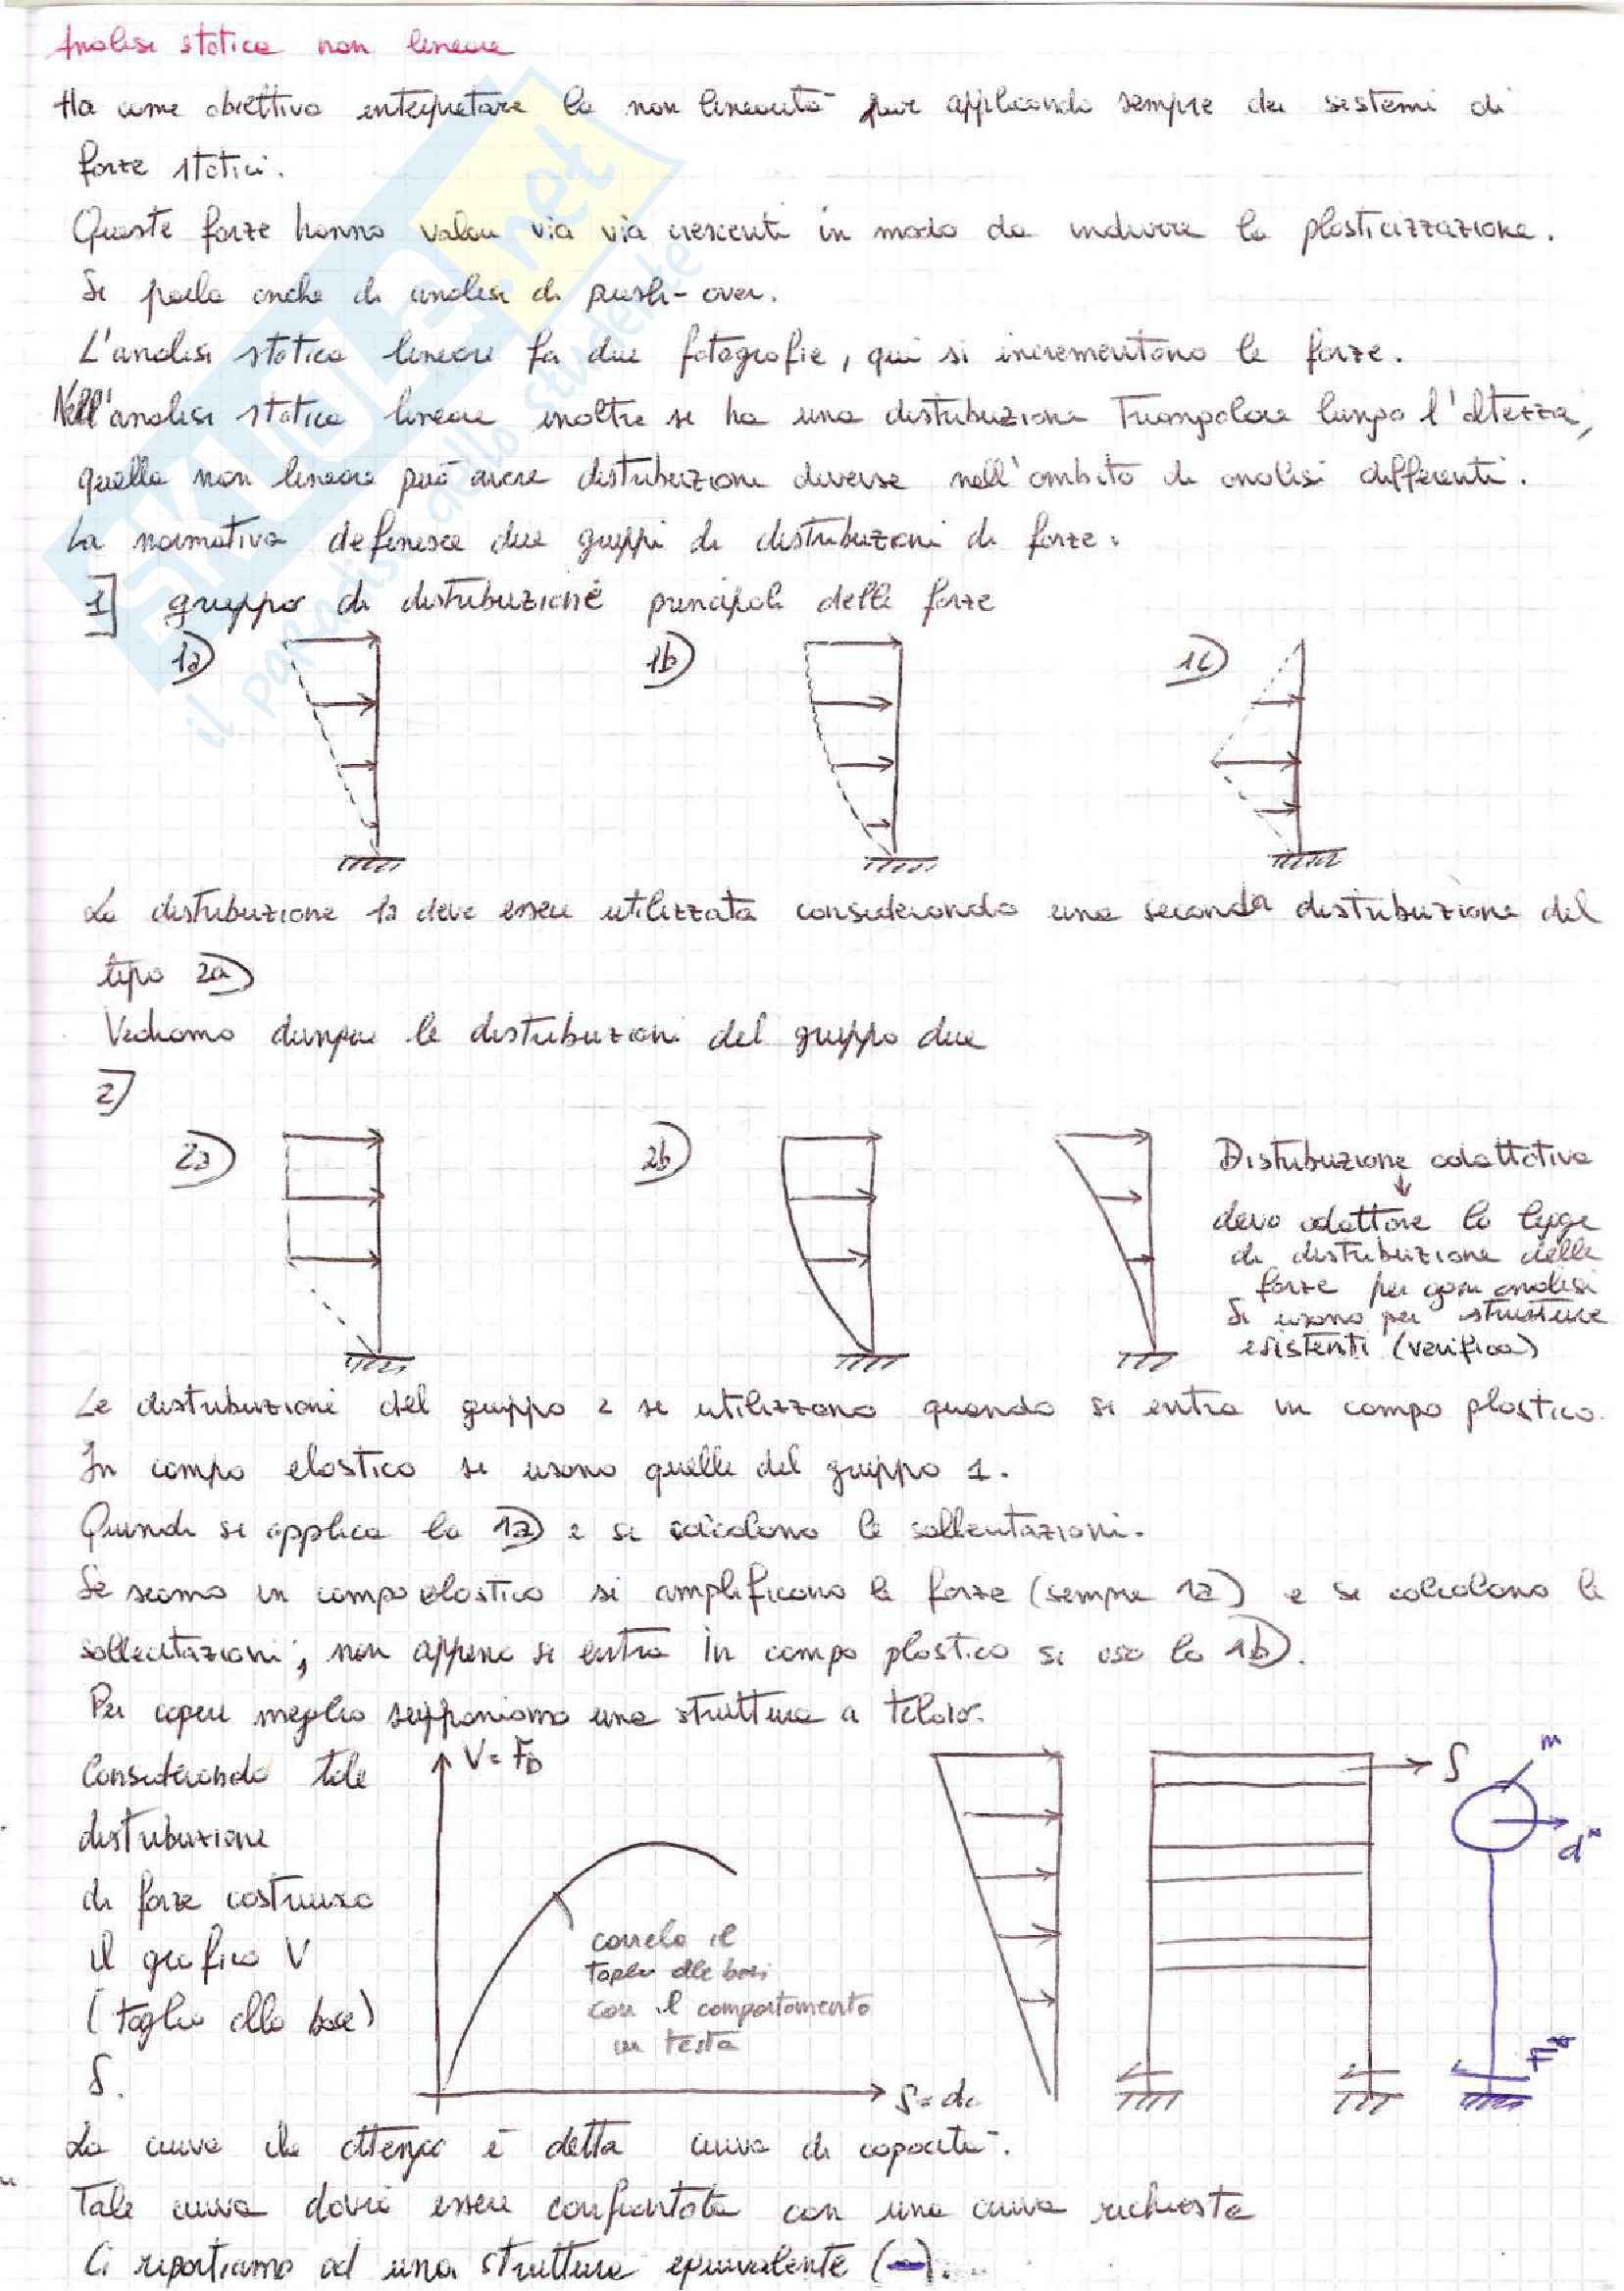 Analisi statica non lineare
Ha come obiettivo interpretare la non linearità pur applicando sempre dei sistemi di
forze statici.
Queste forze hanno valori via via crescenti in modo da indurre la plasticizzazione.
Si parla anche di analisi di push-over.
L'analisi statica lineare fa due fotografie, qui si incrementano le forze.
Nell'analisi statica lineare inoltre si ha una distribuzione triangolare lungo l'altezza,
quella non lineare può avere distribuzioni diverse nell'ambito di analisi differenti.
La normativa definisce due gruppi di distribuzioni di forze:
1] gruppo di distribuzione principali delle forze
1a) 1b) 1c)
La distribuzione 1a deve essere utilizzata considerando una seconda distribuzione del
tipo 2a)
Vediamo dunque le distribuzioni del gruppo due
2]
2a) 2b)
Distribuzione adattativa
↓
devo adattare la legge
di distribuzione delle
forze per ogni analisi
Si usano per strutture
esistenti (verifica)
Le distribuzioni del gruppo 2 si utilizzano quando si entra in campo plastico.
In campo elastico si usano quelle del gruppo 1.
Quindi si applica la 1a) e si calcolano le sollecitazioni.
Se siamo in campo elastico si amplificano le forze (sempre 1a) e si calcolano le
sollecitazioni; non appena si entra in campo plastico si usa la 1b).
Per capire meglio supponiamo una struttura a telaio.
Considerando tale
distribuzione
di forze costruisco
il grafico V
(taglio alla base)
δ.
V = Fb
correla il
taglio alla base
con il comportamento
in testa
δ = dc
δ
m
d*
F*
La curva che ottengo è detta curva di capacità.
Tale curva dovrà essere confrontata con una curva richiesta
Ci riportiamo ad una struttura equivalente (-).
SKUOLA.net
il paradiso dello studente